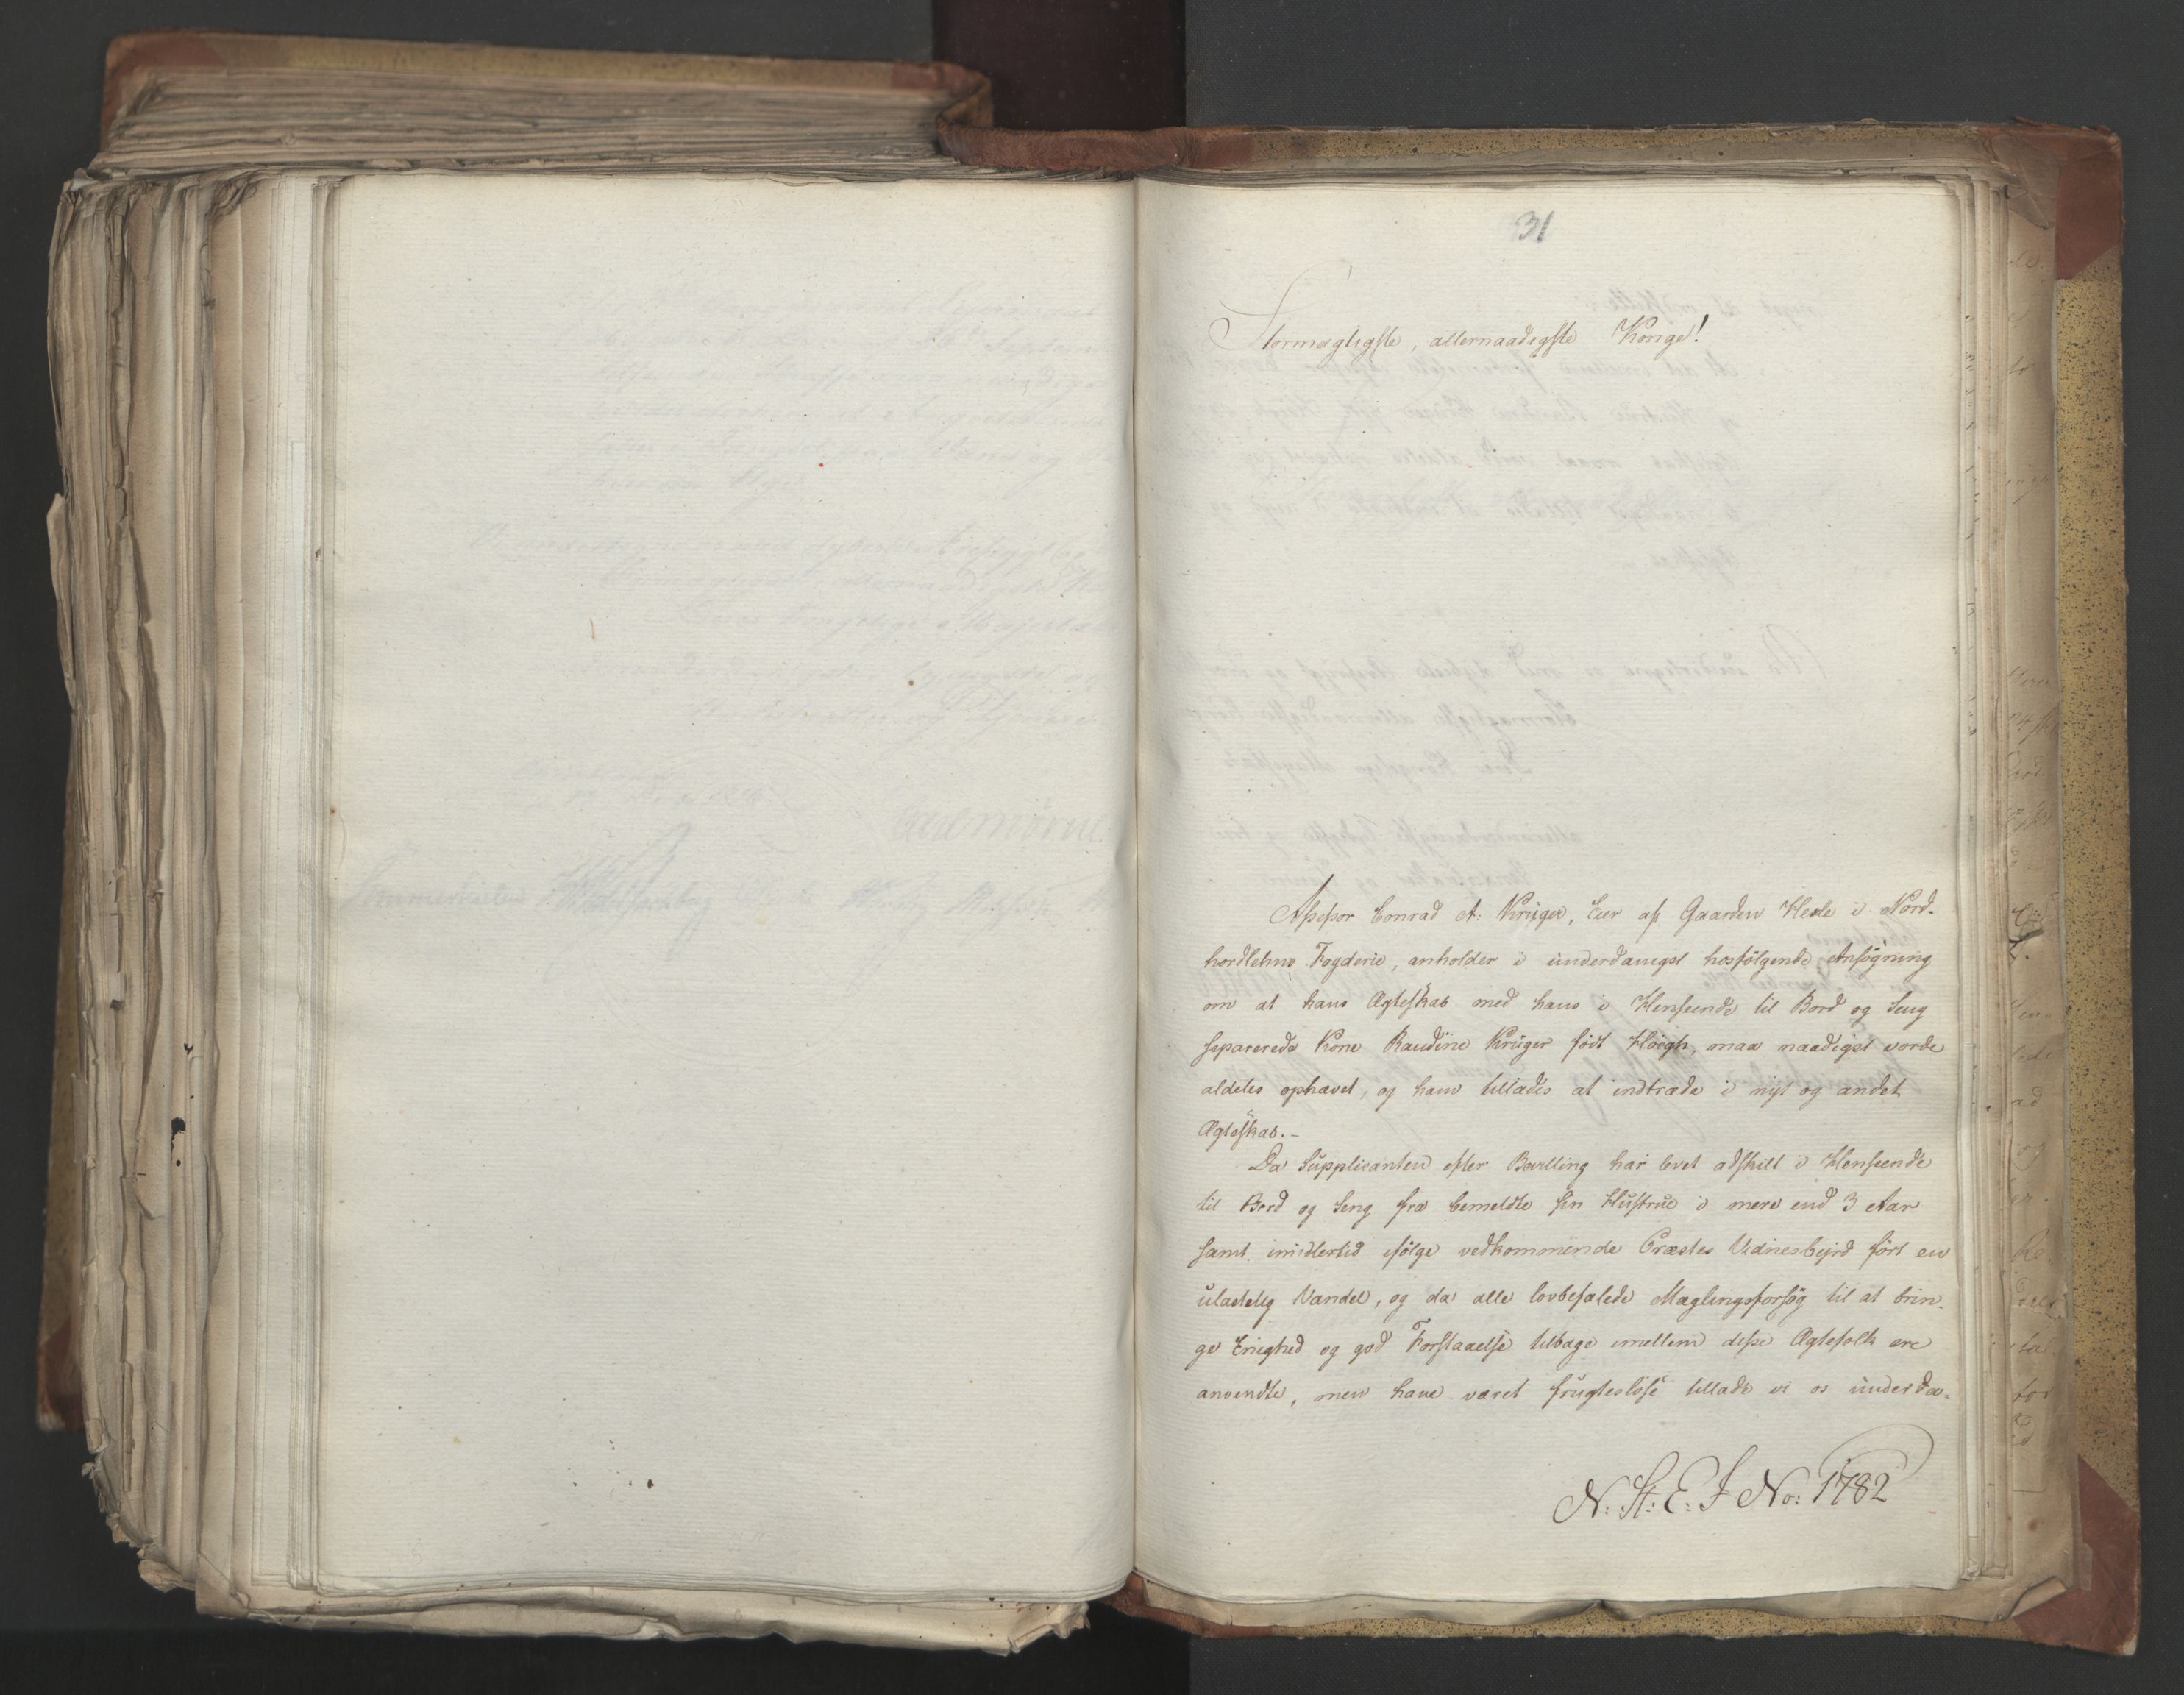 31
Stormægtigste, allernaadigste Konge!
Assessor Conrad A: Krüger, Eier af Gaarden Hesle i Nord-
hordlehns Fogderie, anholder i underdanigst hosfølgende Ansøgning
om at hans Ægteskab med hans i Henseende til Bord og Seng
separerede Kone Raudine Krüger født Høegh, maa naadigst vorde
aldeles ophævet, og ham tillades at indtræde i nyt og andet
Ægteskab.-
Da Supplicanten efter Bevilling har levet adskilt i Henseende
til Bord og Seng fra bemeldte sin Hustrue i mere end 3 Aar
samt imidlertid ifølge vedkommende Præstes Vidnesbyrd ført en
uladelig Vandel, og da alle lovbefalede Mæglingsforsøg til at brin-
ge Enighed og god Forstaaelse tilbage imellem disse Ægtefolk ere
anvendte, men have været frugtesløse tillade vi os underda-
N: St: E: J No: 1782